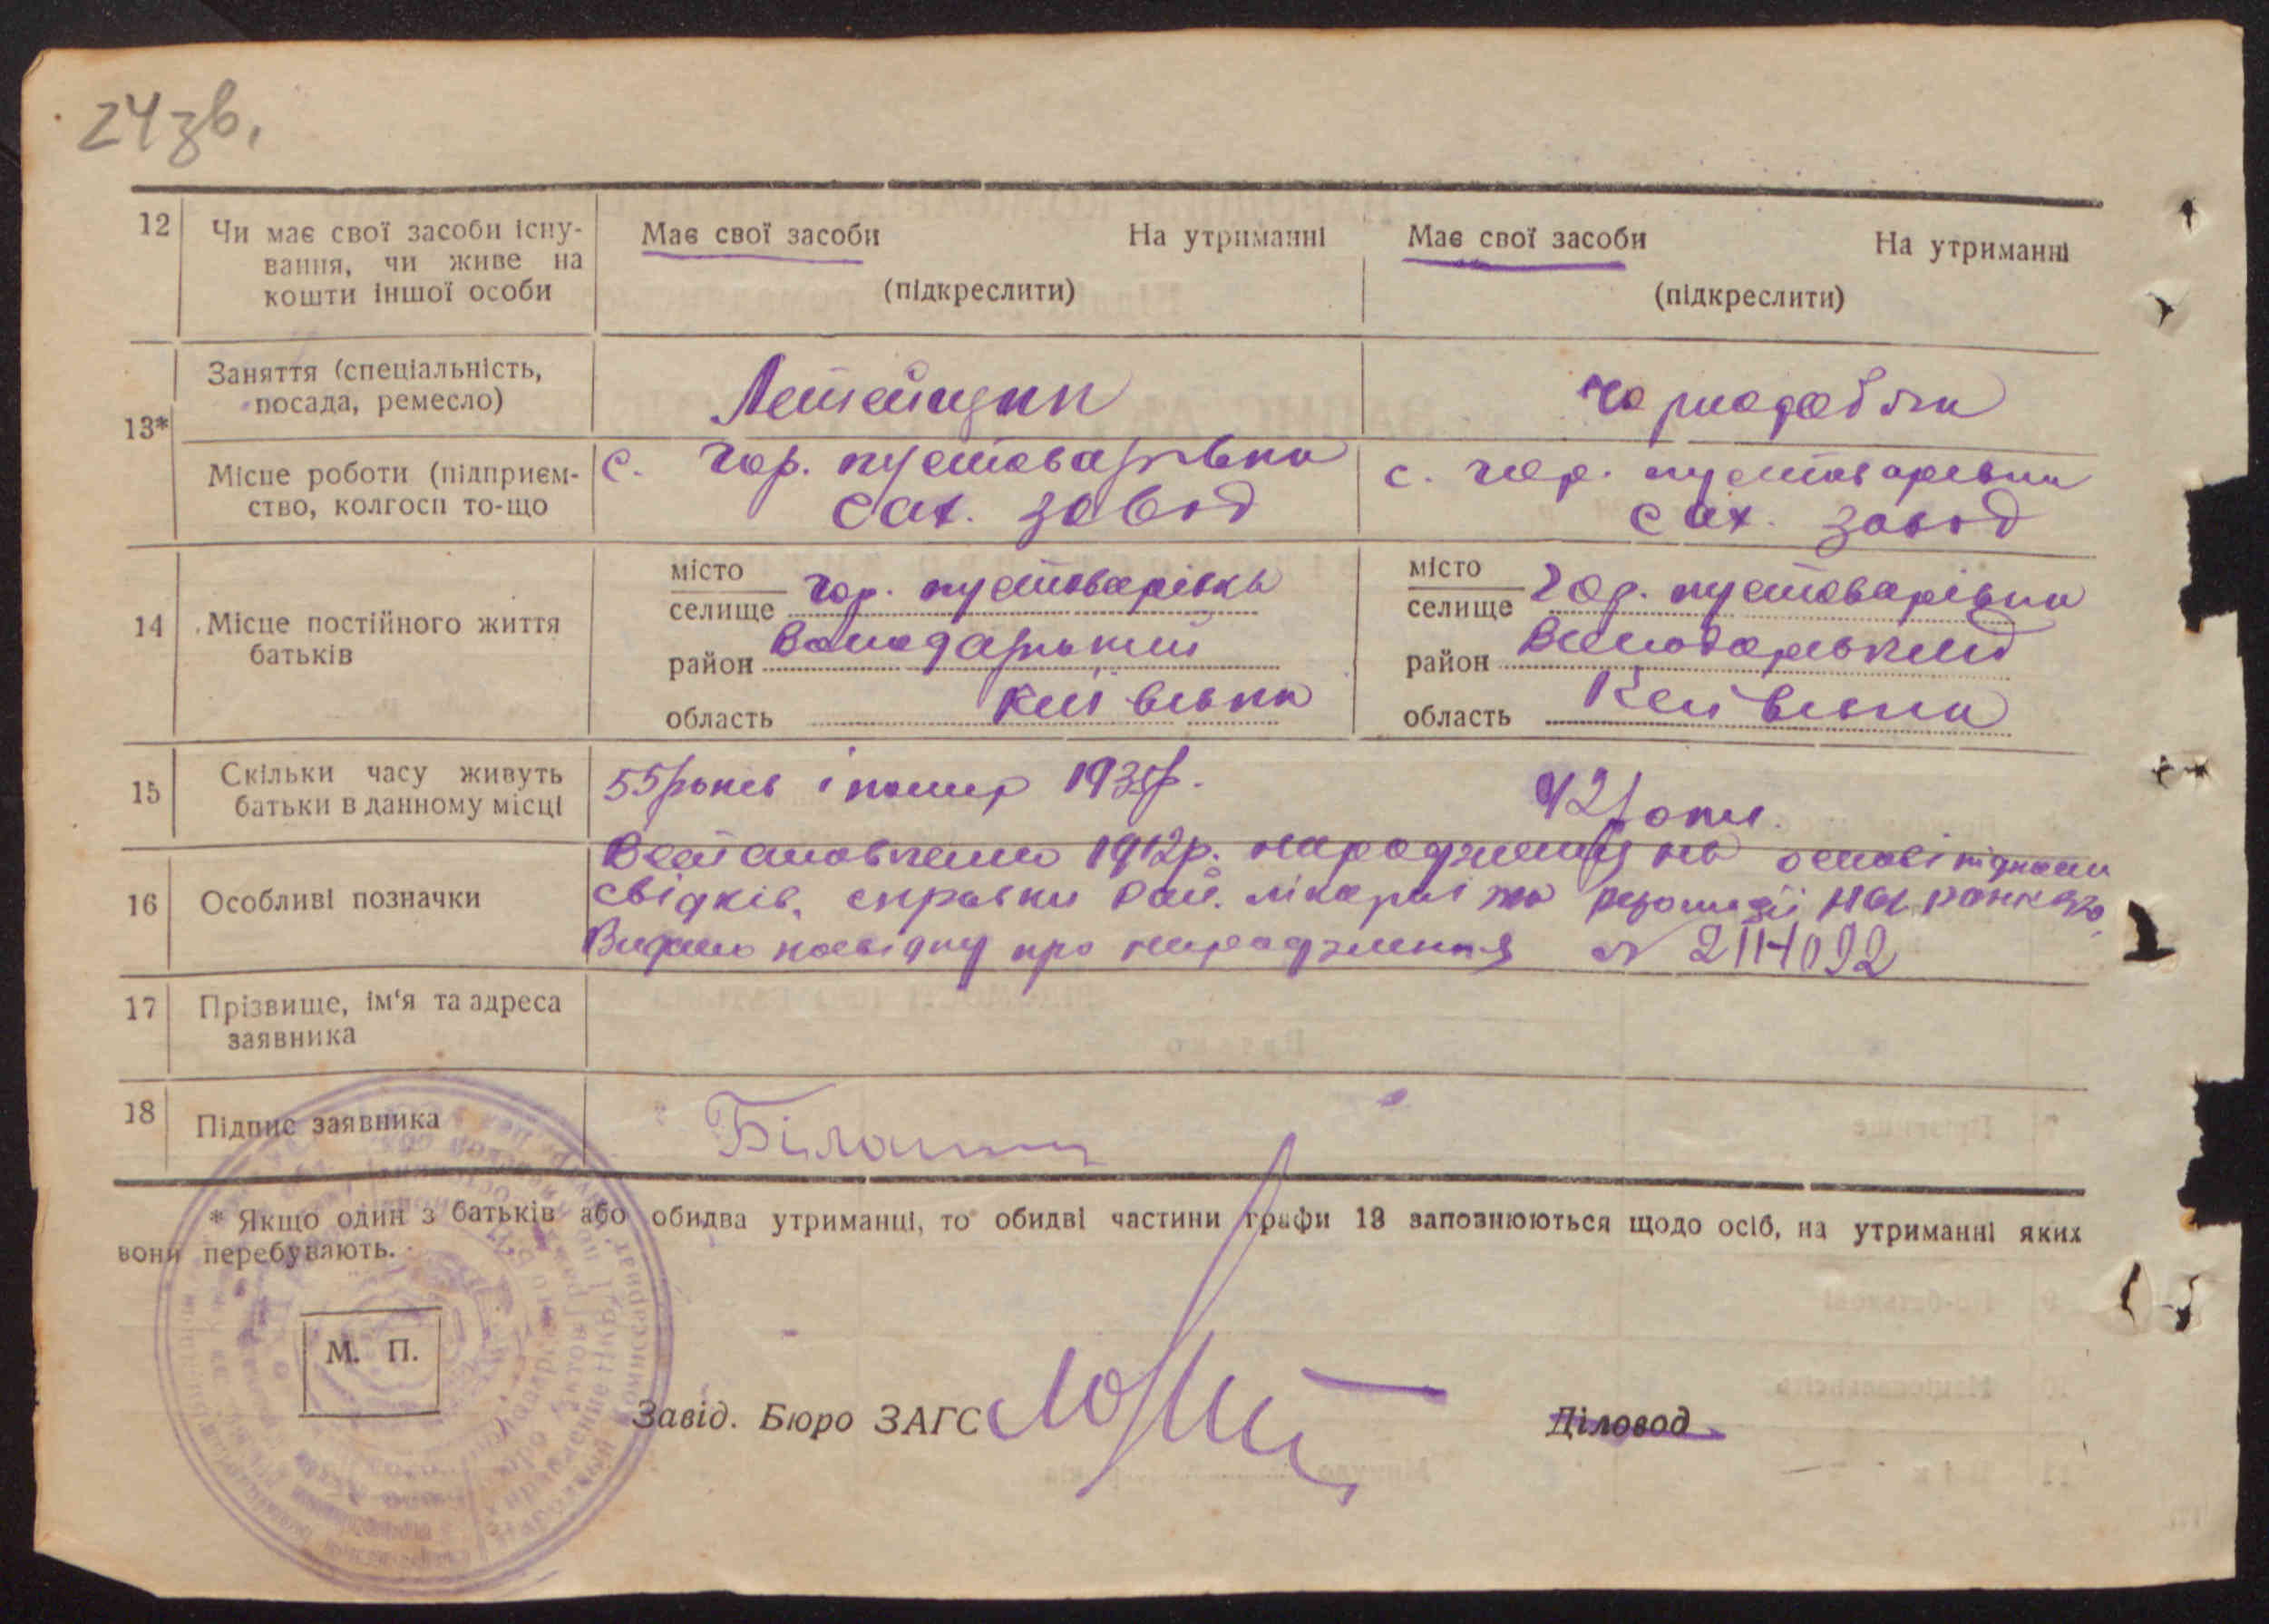 24 зв.
12 Чи має свої засоби існу-
вання, чи живе на
кошти іншої особи
Має свої засоби На утриманні
(підкреслити)
Має свої засоби На утриманні
(підкреслити)
13*
Заняття (спеціальність,
посада, ремесло)
чорнороб
Місце роботи (підприєм-
ство, колгосп то-що
с. гор. пустоварівка
сах. завод
с. гор. пустоварівка
сах. завод
14 Місце постійного життя
батьків
місто
селище гор. пустоварівка
район Володарський
область Київська
місто
селище гор. пустоварівка
район Володарський
область Київська
15 Скільки часу живуть
батьки в данному місці
55 років і помер 193 р.
42 роки.
16 Особливі позначки
Встановлено 1912р. народження на основі
свідків, справки Рай. лікарні та
Видано посвідку про народження № 2114092
17 Прізвище, ім'я та адреса
заявника
18 Підпис заявника
* Якщо один з батьків або обидва утриманці, то обидві частини графи 13 заповнюються щодо осіб, на утриманні яких
вони перебувають.
М. П.
Завід. Бюро ЗАГС
Діловод